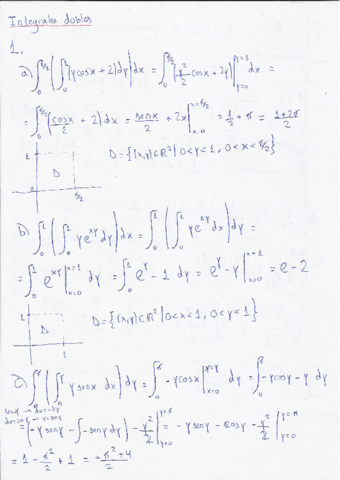 Integrales dobles
1.
a) ∫₀^{π/2} (∫₀^1 (y cosx + 2) dy) dx = ∫₀^{π/2} (y²/2 cosx + 2y) |_{y=0}^{y=1} dx =
= ∫₀^{π/2} (cosx/2 + 2) dx = senx/2 + 2x |_{x=0}^{x=π/2} = 1/2 + π = 1+2π/2
1
D
0
π/2
D = {(x,y)∈ℝ² | 0<y<1, 0<x<π/2}
b) ∫₀^1 (∫₀^1 y e^{xy} dy) dx = ∫₀^1 (∫₀^1 y e^{xy} dx) dy =
= ∫₀^1 e^{xy} |_{x=0}^{x=1} dy = ∫₀^1 e^y - 1 dy = e^y - y |_{x=0}^{x=1} = e - 2
1
D
1
D = {(x,y)∈ℝ² | 0<x<1, 0<y<1}
c) ∫₀^π (∫₀^y y senx dx) dy = ∫₀^π -y cosx |_{x=0}^{x=y} dy = ∫₀^π -y cosy - y dy
= (-y seny - ∫-seny dy) - y²/2 |_{y=0}^{y=π} = -y seny - cosy - y²/2 |_{y=0}^{y=π}
= 1 - π²/2 + 1 =